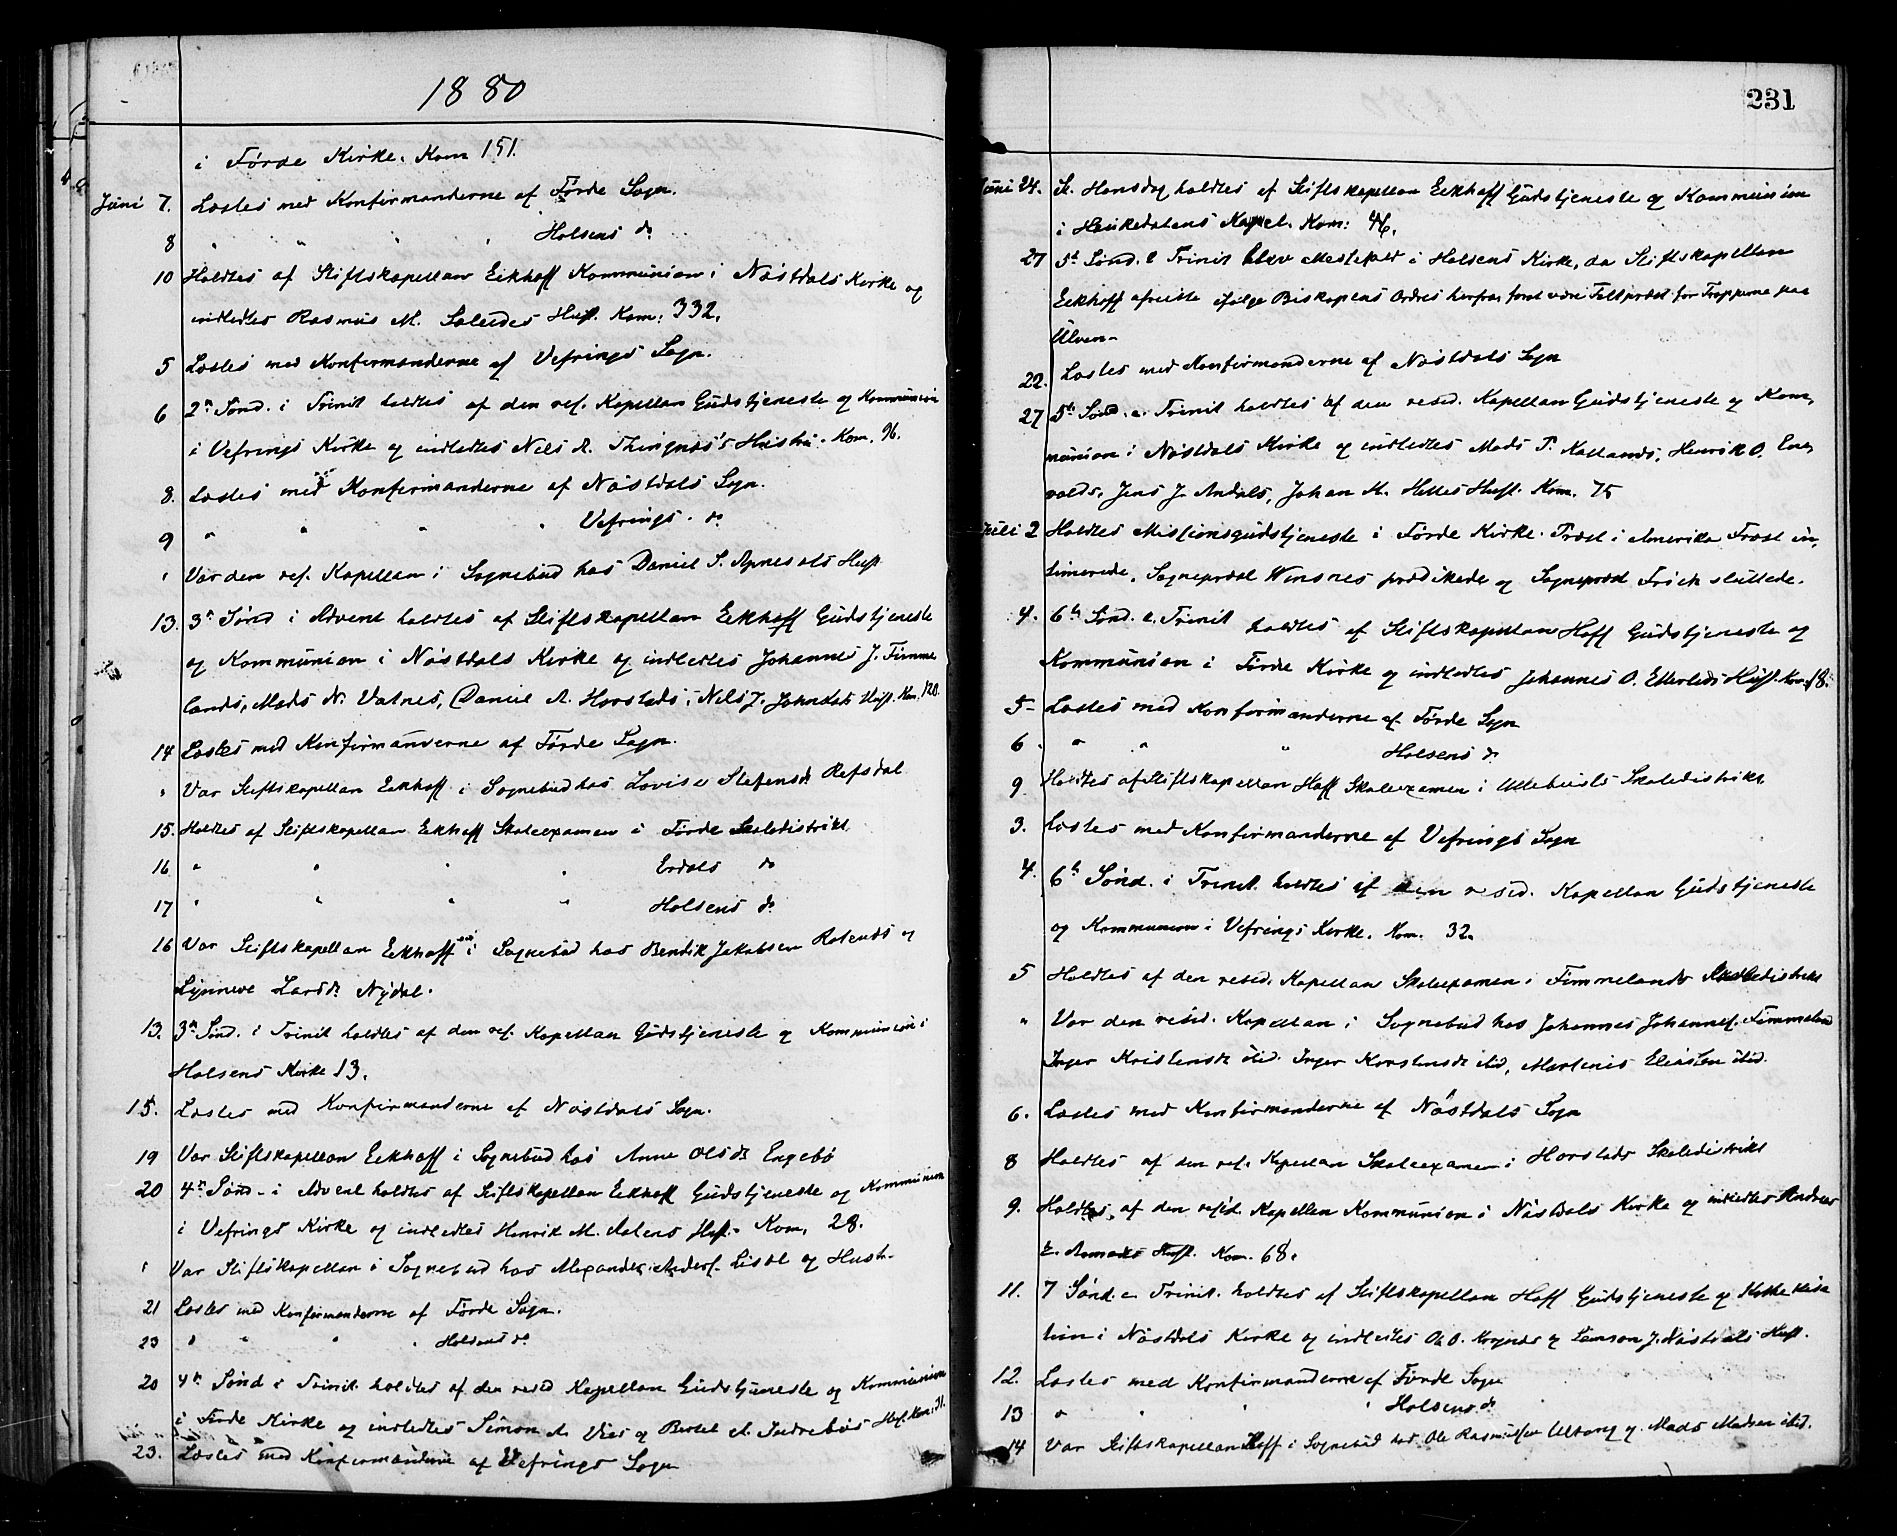 1880
i Förde Kirke. Kom 151.
Juni 7. Læstes med Konfirmanderne af Förde Sogn.
8 " " " " Holsens do
10 Holdtes af Stiftskapellan Eckhoff Kommunion i Nöstdals Kirke og
indledtes Rasmus M. Hust. Kom: 332.
5 Læstes med Konfirmanderne af Vefrings Sogn.
6 2n Sönd. i Trinit holdtes af den res. Kapellan Gudstjeneste og Kommunion
i Vefrings Kirke og indledtes Nels A. Thingnæs's Hustru. Kom. 96.
8. Læstes med Konfirmanderne af Nöstdals Sogn.
9 " " " " Vefrings do
" Var den res. Kapellan i Sognebud hos Daniel S. Hust
13. 3n Sönd i Advent holdtes af Stiftskapellan Eckhoff Gudstjeneste
og Kommunion i Nöstdals Kirke og indledtes Johannes J. Fimme
lands, Mads N. Vatnes, Daniel A. Horstads, Nels J. Hust. Kom. 120.
14 Læstes med Konfirmanderne af Förde Sogn.
" Var Stiftskapellan Eckhoff i Sognebud hos Lovise Stefensdr Refsdal
15. Holdtes af Stiftskapellan Eckhoff Skoleexamen i Förde Skoledistrikt
16 " " " " Erdals do
17 " " " " Holsens do
16 Var Stiftskapellan Eckhoff i Sognebud hos Bendik Jakobsen og
Larsdr Nydal.
13. 3n Sönd. i Trinit holdtes af den res. Kapellan Gudstjeneste og Kommunion i
Holsens Kirke 13.
15. Læstes med Konfirmanderne af Nöstdals Sogn.
19 Var Stiftskapellan Eckhoff i Sognebud hos Anne Olsdr Engebö
20 4n Sönd. i Advent holdtes af Stiftskapellan Eckhoff Gudstjeneste og Kommunion
i Vefrings Kirke og indledtes Henrik M. Hust. Kom. 28.
" Var Stiftskapellan i Sognebud hos Alexander Anders. og Hust.
21 Læstes med Konfirmanderne af Förde Sogn.
23 " " " " Holsens do
20 4n Sönd i Trinit. holdtes af den resid Kapellan Gudstjeneste og Kommunion
i Förde Kirke og indledtes Simon A. Vies og Bertel A. Indrebös Hus. Kom: 31.
23. Læstes med Konfirmanderne af Vefrings Sogn
231
Juni 24. St. Hansdag holdtes af Stiftskapellan Eckhoff Gudstjeneste og Kommunion
i Haukedalens Kapel. Kom: 46.
27 5t Sönd. e Trinit blev Messefald i Holsens Kirke, da Stiftskapellan
Eckhoff afreiste ifölge Biskopens Ordres herfra forat være Feltpræst for Tropperne paa
Ulven.
22. Læstes med Konfirmanderne af Nöstdals Sogn
27 5te Sönd. e. Trinit holdtes af den resid. Kapellan Gudstjeneste og Kom,
munion i Nöstdals Kirke og indledtes Mads P. Kallands, Henrik O. Ene,
volds, Jens J. Andals, Johan M. Helles Hust. Kom. 75
Juli 2 Holdtes Missionsgudstjeneste i Förde Kirke. Præst i Amerika Frost in,
timerede, Sognepræst Winsnes prædikede og Sognepræst Frich sluttede.
4. 6te Sönd. e. Trinit holdtes af Stiftskapellan Hoff Gudstjeneste og
Kommunion i Förde Kirke og indledtes Johannes O. Hust. Kom. 18.
5 Læstes med Konfirmanderne af Förde Sogn
6. " " " Holsens do
9 Holdtes af Stiftskapellan Hoff Skoleexamen i Ullebusts Skoledistrikt
3. Læstes med Konfirmanderne af Vefrings Sogn
4. 6te Sönd. i Trinit. holdtes af den resid. Kapellan Gudstjeneste
og Kommunion i Vefrings Kirke. Kom. 32.
5 Holdtes af den resid. Kapellan Skoleexamen i Fimmelands Skoledistrikt
" Var den resid. Kapellan i Sognebud hos Johannes Johannes. Fimmeland
Inger Kristensdr ibid. Inger Karstensdr ibid, Martinis Eliassen ibid.
6. Læstes med Konfirmanderne af Nöstdals Sogn
8 Holdtes af den res. Kapellan Skoleexamen i Horstads Skoledistrikt
9. Holdtes af den resid. Kapellan Kommunion i Nöstdals Kirke og indledtes Andreas
Hust. Kom. 68.
11. 7 Sönd. e. Trinit. holdtes af Stiftskapellan Hoff Gudstjeneste og Katekisa
tion i Nöstdals Kirke og indledtes O. og J. Nöstdals Hust.
12. Læstes med Konfirmanderne af Förde Sogn
13 " " " " Holsens do
14 Var Stiftskapellan Hoff i Sognebud hos Ole Rasmussen og Mads Madsen ibid.